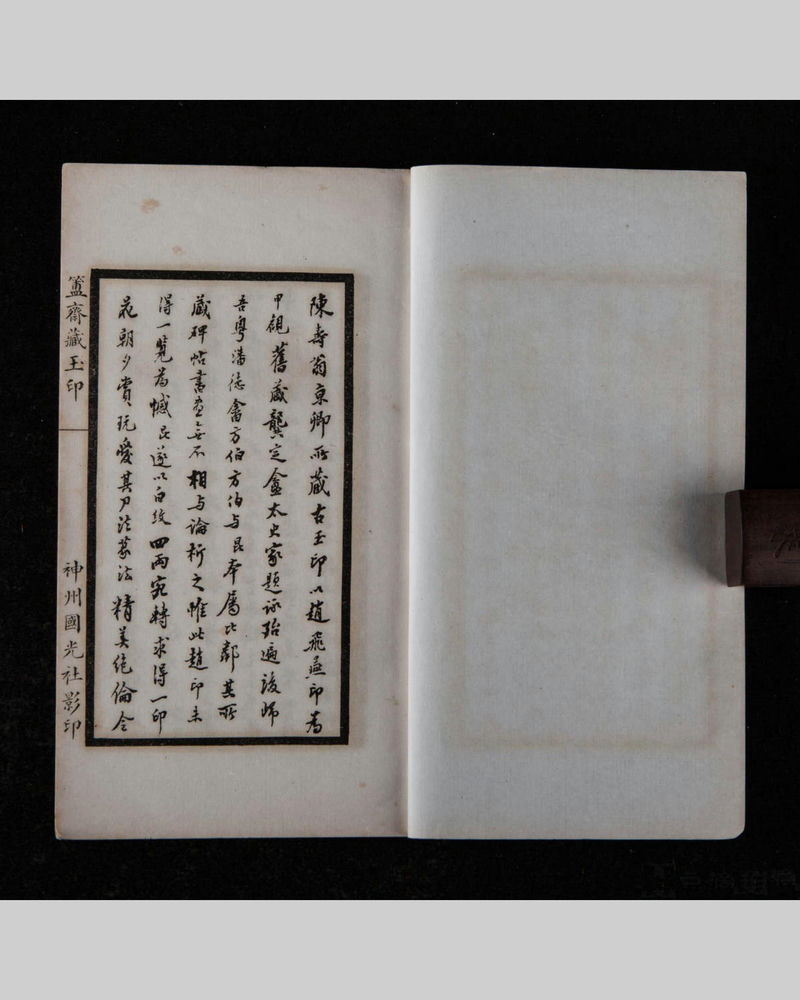 陳壽翁京卿所藏古玉印以趙飛燕印為
甲觀舊藏龔定盦太史家題詠殆遍後歸
吾粵潘德畬方伯方伯与昆季屬比鄰其所
藏碑帖書畫無不相与論析之惟此趙印未
得一覽為憾昆遂以白紋四兩宛轉求得一印
花朝夕賞玩愛其刀法篆法精美絕倫今
簠齋藏玉印
神州國光社影印